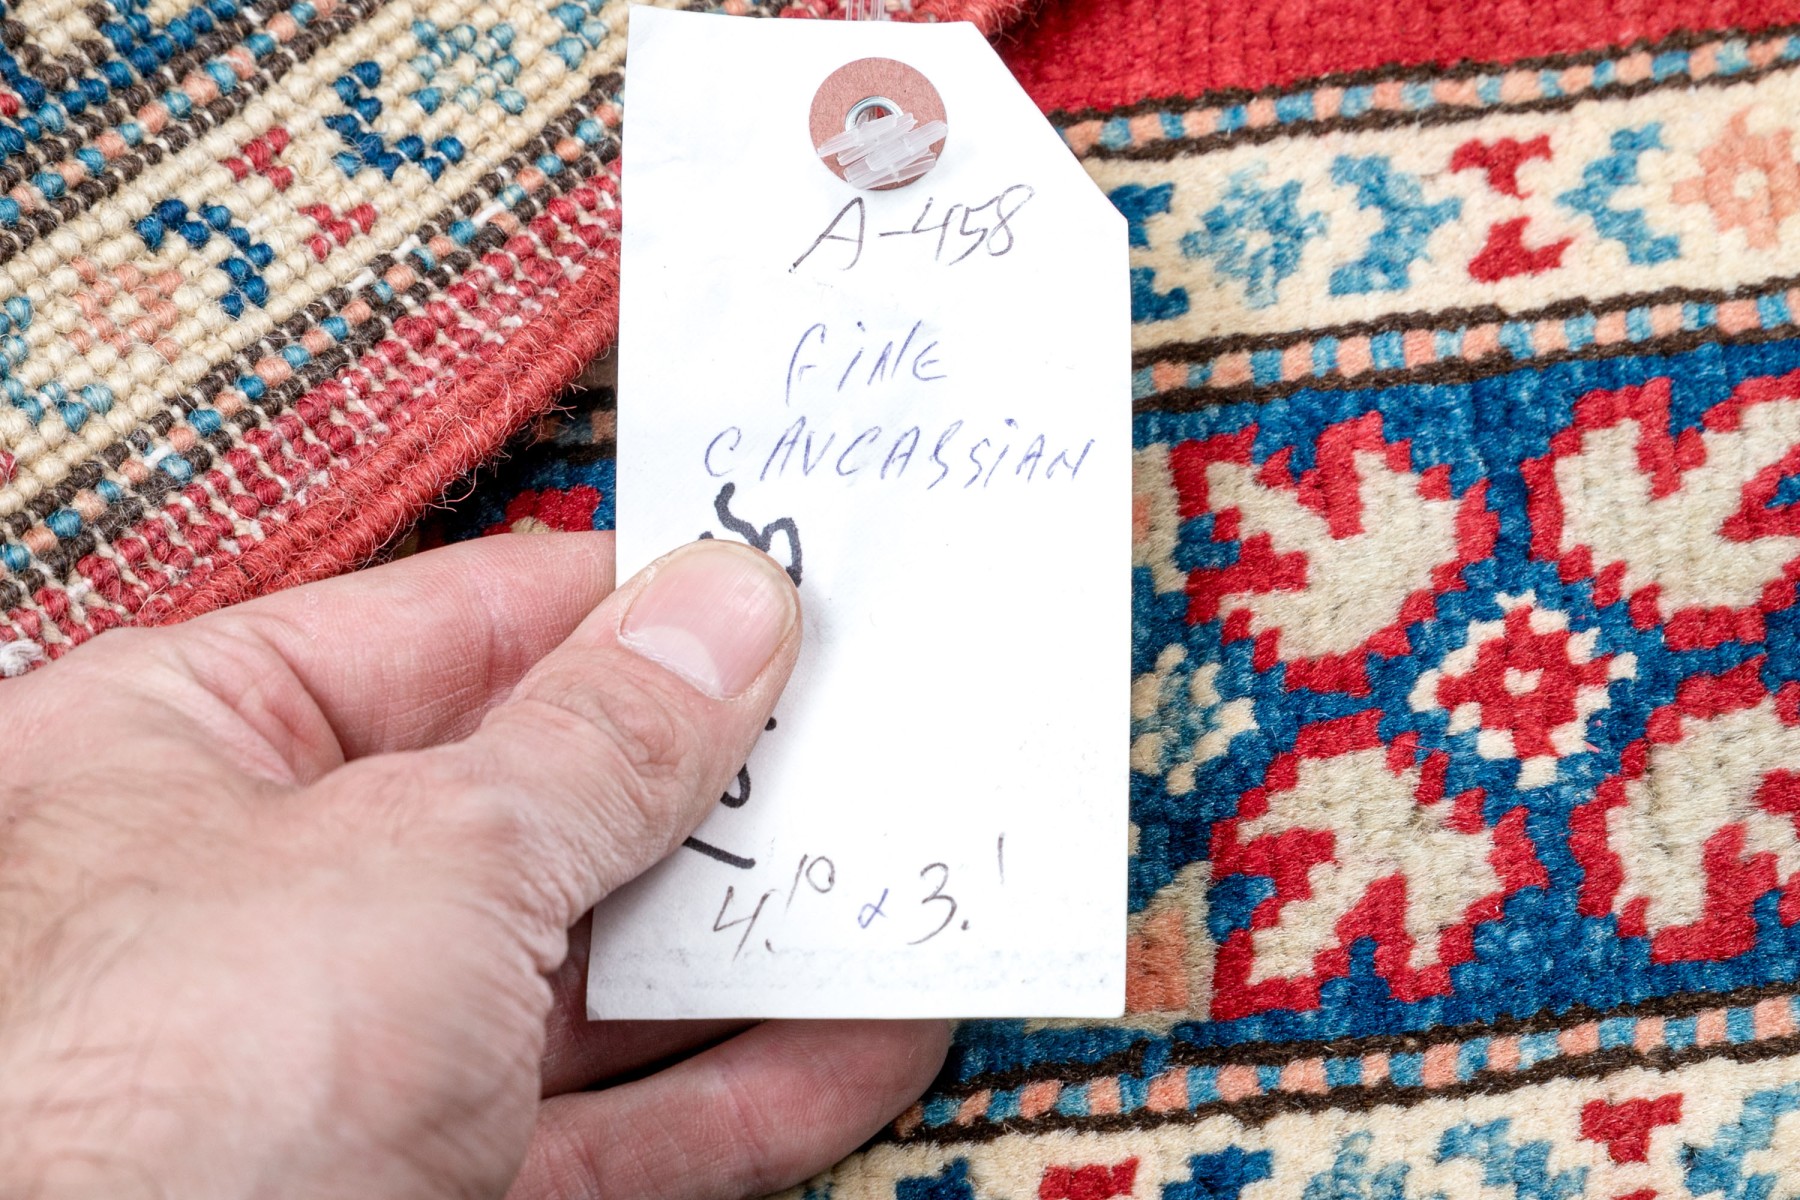 A-458
FINE
CAUCASSIAN
4.10 x 3.1